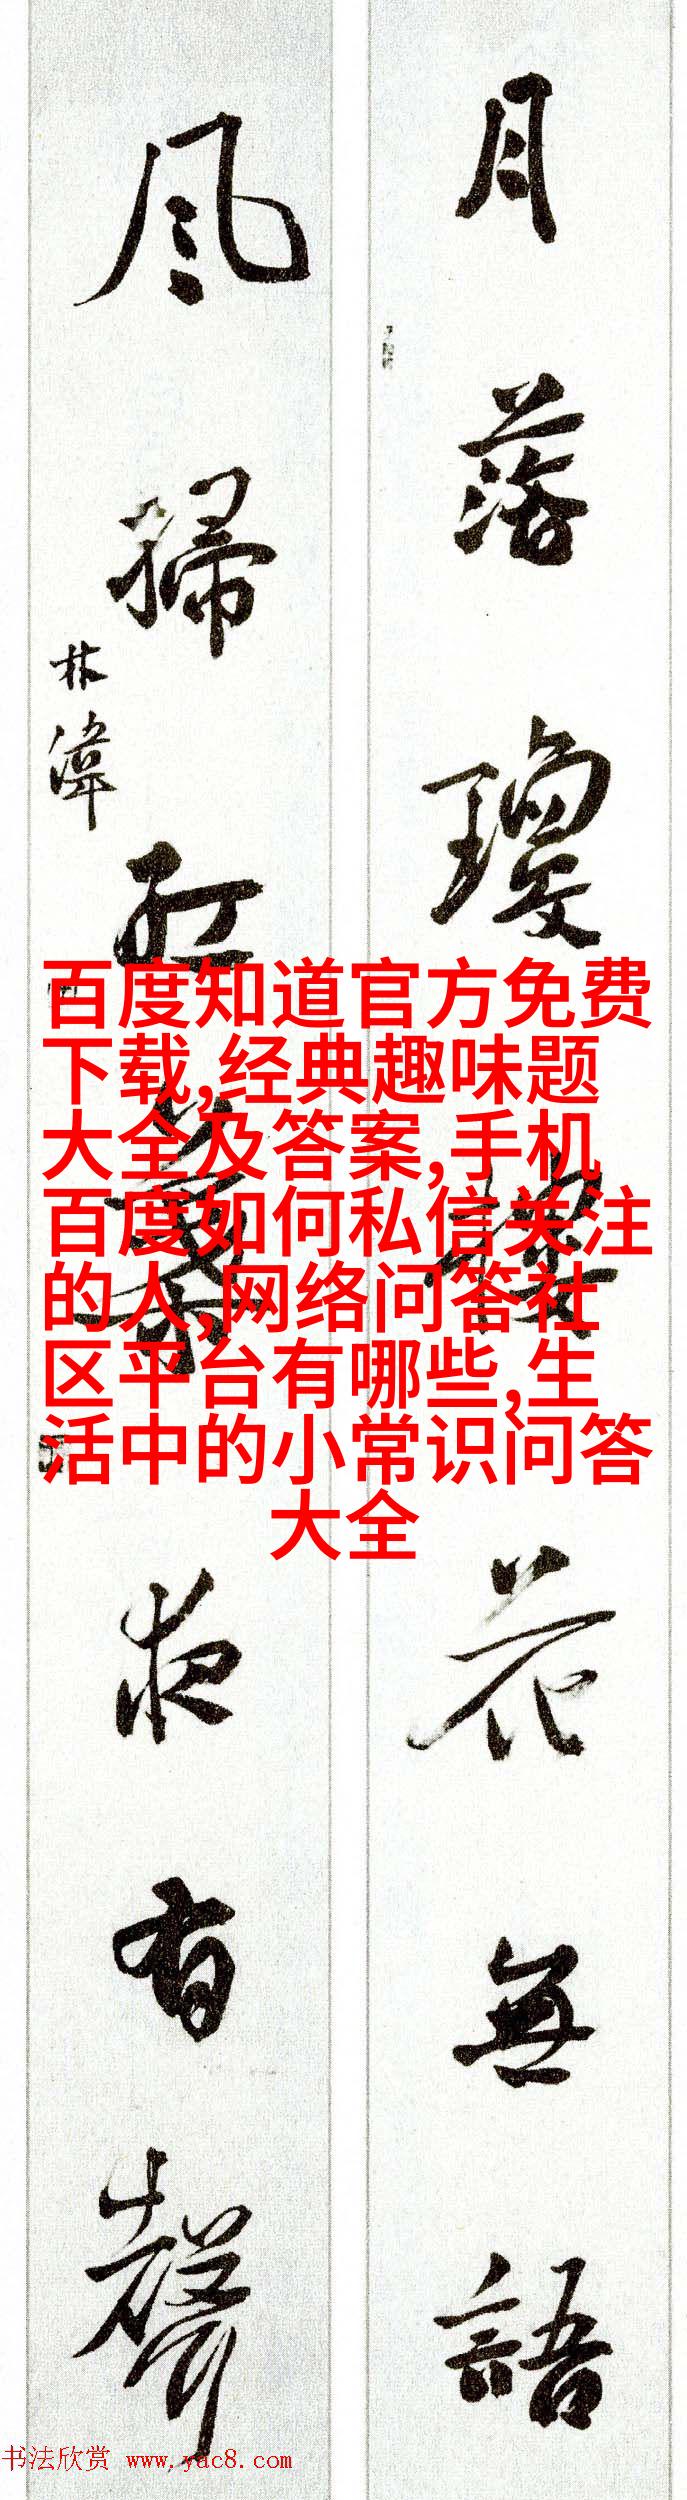 月落瓊樓花無語
風掃紅葉夜有聲
林偉
百度知道官方免费
下载,经典趣味题
大全及答案,手机
百度如何私信关注
的人,网络问答社
区平台有哪些,生
活中的小常识问答
大全
书法欣赏 www.yac8.com